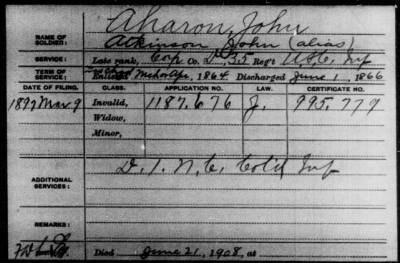 Aharon, John
NAME OF SOLDIER: Atkinson John (alias)
SERVICE: Late rank, Corp Co. D, 35 Reg't U.S.C. Inf
TERM OF SERVICE: Enlisted 1864 Discharged June 1, 1866
DATE OF FILING. CLASS. APPLICATION NO. LAW. CERTIFICATE NO.
1897 Mar 9 Invalid, 1187.676 J. 995.779
Widow,
Minor,
ADDITIONAL SERVICES: D. 1 N.C. Cold Inf
REMARKS:
Died June 21, 1908, at